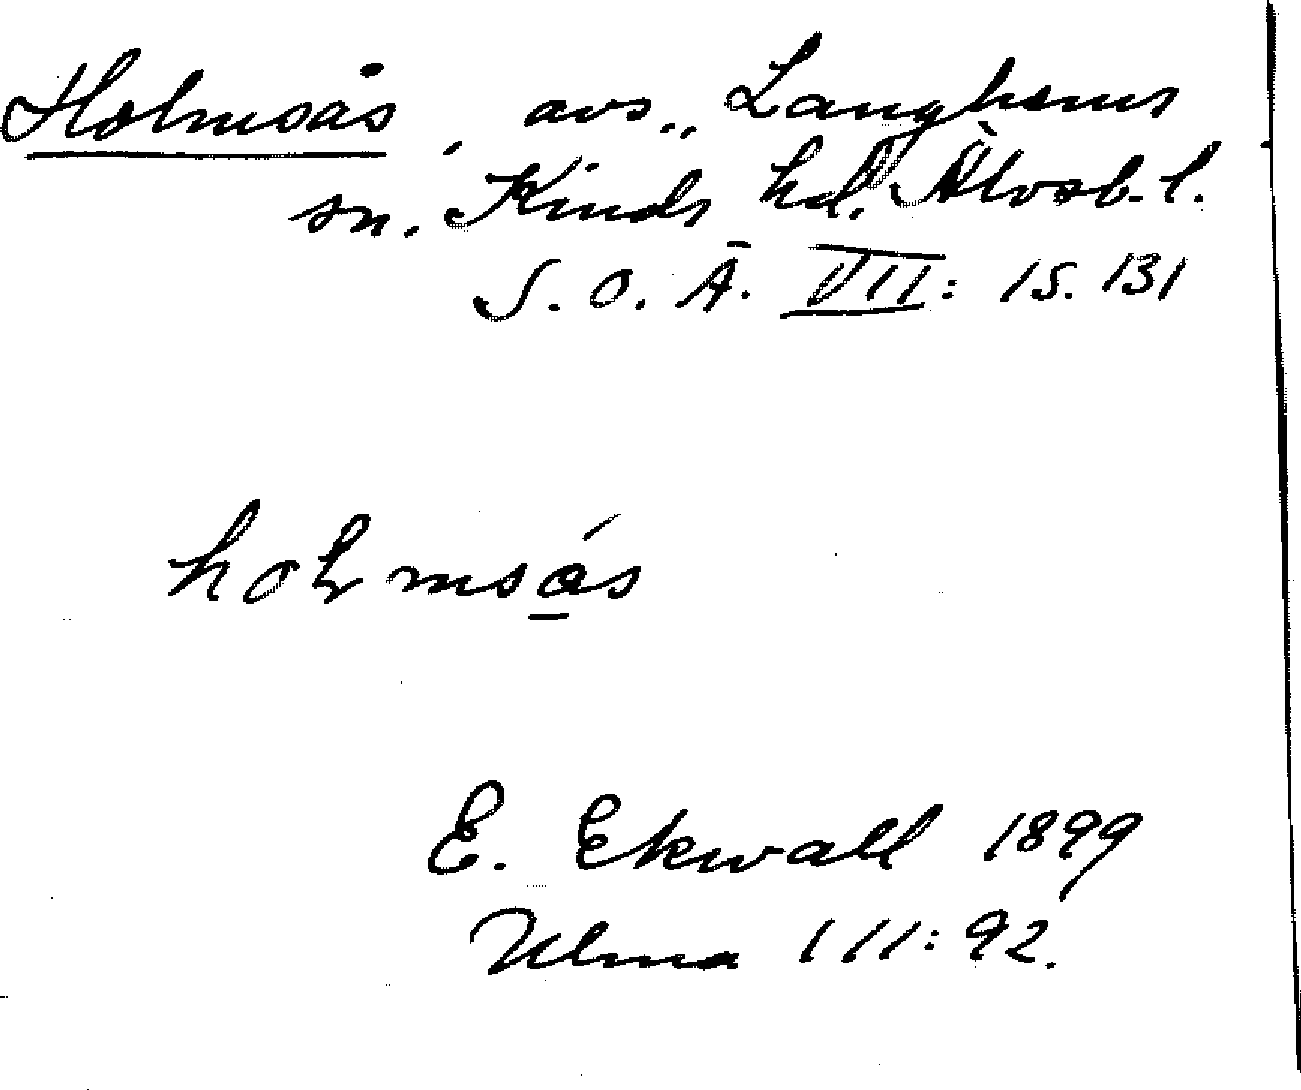 Holmsås, avs., Länghems
sn. Kinds hd. Älvsb. l.
S. O. Ä. VII: 1 S. 131
holmsås
E. Ekwall 1899
Ulma 111: 92.